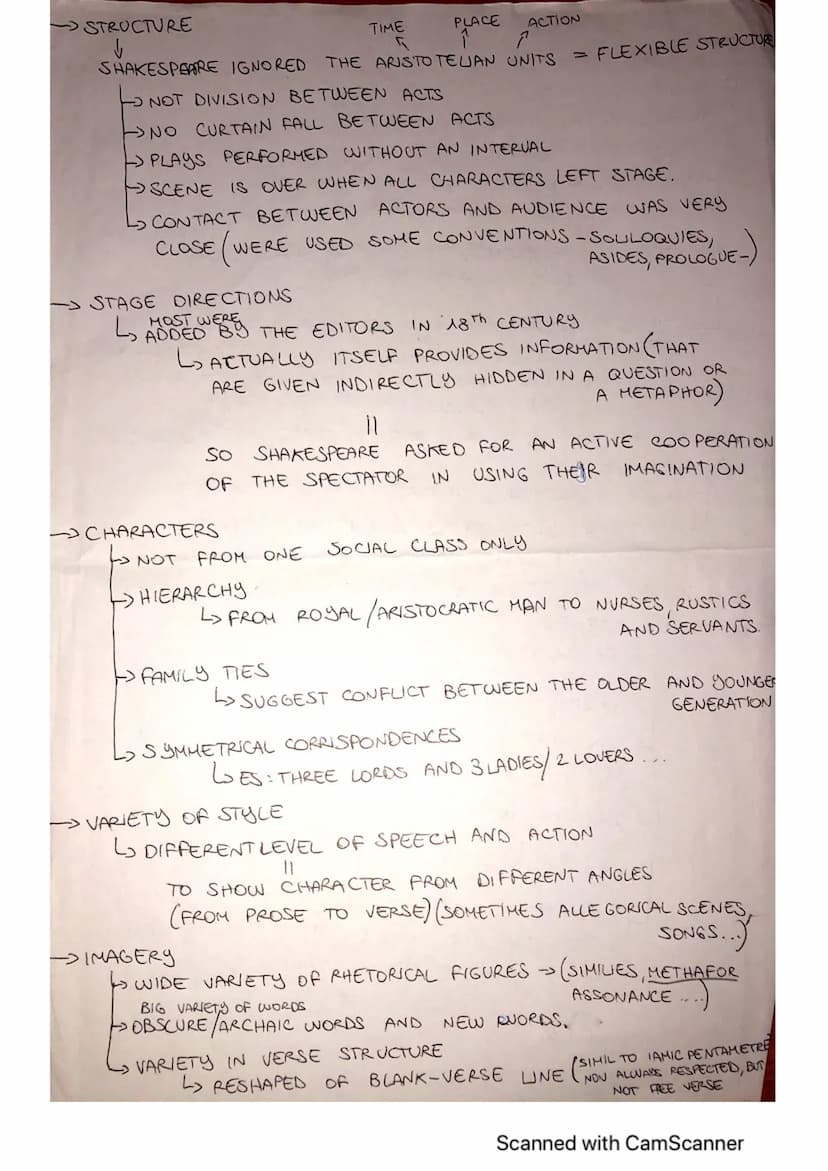 → STRUCTURE
TIME PLACE ACTION
SHAKESPEARE IGNORED THE ARISTOTELIAN UNITS = FLEXIBLE STRUCTURE
↳ NOT DIVISION BETWEEN ACTS
↳ NO CURTAIN FALL BETWEEN ACTS
↳ PLAYS PERFORMED WITHOUT AN INTERVAL
↳ SCENE IS OVER WHEN ALL CHARACTERS LEFT STAGE.
↳ CONTACT BETWEEN ACTORS AND AUDIENCE WAS VERY
CLOSE (WERE USED SOME CONVENTIONS - SOLILOQUIES,
ASIDES, PROLOGUE-)
→ STAGE DIRECTIONS
MOST WERE
↳ ADDED BY THE EDITORS IN 18th CENTURY
↳ ACTUALLY ITSELF PROVIDES INFORMATION (THAT
ARE GIVEN INDIRECTLY HIDDEN IN A QUESTION OR
A METAPHOR)
||
SO SHAKESPEARE ASKED FOR AN ACTIVE COOPERATION
OF THE SPECTATOR IN USING THEIR IMAGINATION
→ CHARACTERS
↳ NOT FROM ONE SOCIAL CLASS ONLY
↳ HIERARCHY
↳ FROM ROYAL/ARISTOCRATIC MAN TO NURSES, RUSTICS
AND SERVANTS.
↳ FAMILY TIES
↳ SUGGEST CONFLICT BETWEEN THE OLDER AND YOUNGER
GENERATION
↳ SYMMETRICAL CORRISPONDENCES
↳ ES: THREE LORDS AND 3 LADIES/ 2 LOVERS ...
→ VARIETY OF STYLE
↳ DIFFERENT LEVEL OF SPEECH AND ACTION
||
TO SHOW CHARACTER FROM DIFFERENT ANGLES
(FROM PROSE TO VERSE) (SOMETIMES ALLEGORICAL SCENES,
SONGS...)
→ IMAGERY
↳ WIDE VARIETY OF RHETORICAL FIGURES → (SIMILIES, METHAFOR
ASSONANCE ....)
BIG VARIETY OF WORDS
↳ OBSCURE/ARCHAIC WORDS AND NEW WORDS.
↳ VARIETY IN VERSE STRUCTURE
↳ RESHAPED OF BLANK-VERSE LINE (SIMIL TO IAMIC PENTAMETRE
NOW ALWAYS RESPECTED, BUT
NOT FREE VERSE
Scanned with CamScanner